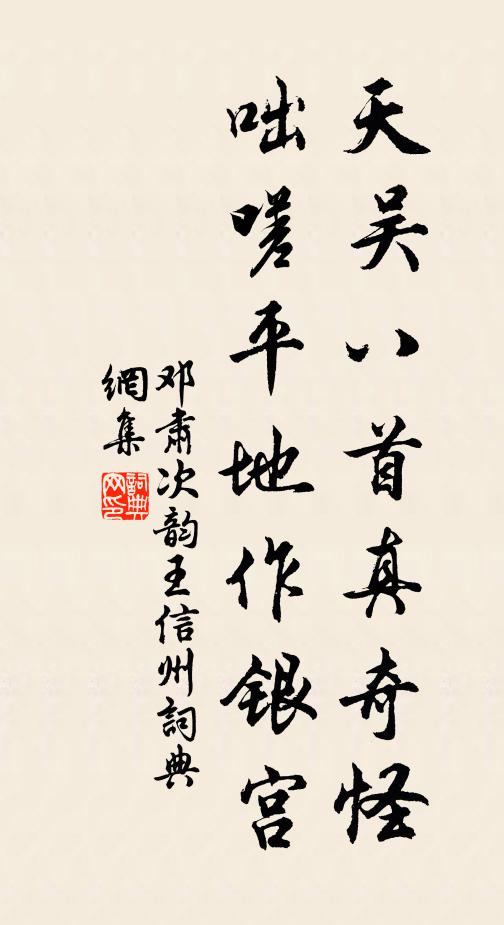 天吴八首真奇怪
咄嗟平地作银宫
邓肃次韵王信州詞典
網集
詞典
网印